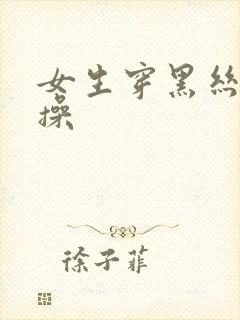 女生穿黑絲
操
徐子菲